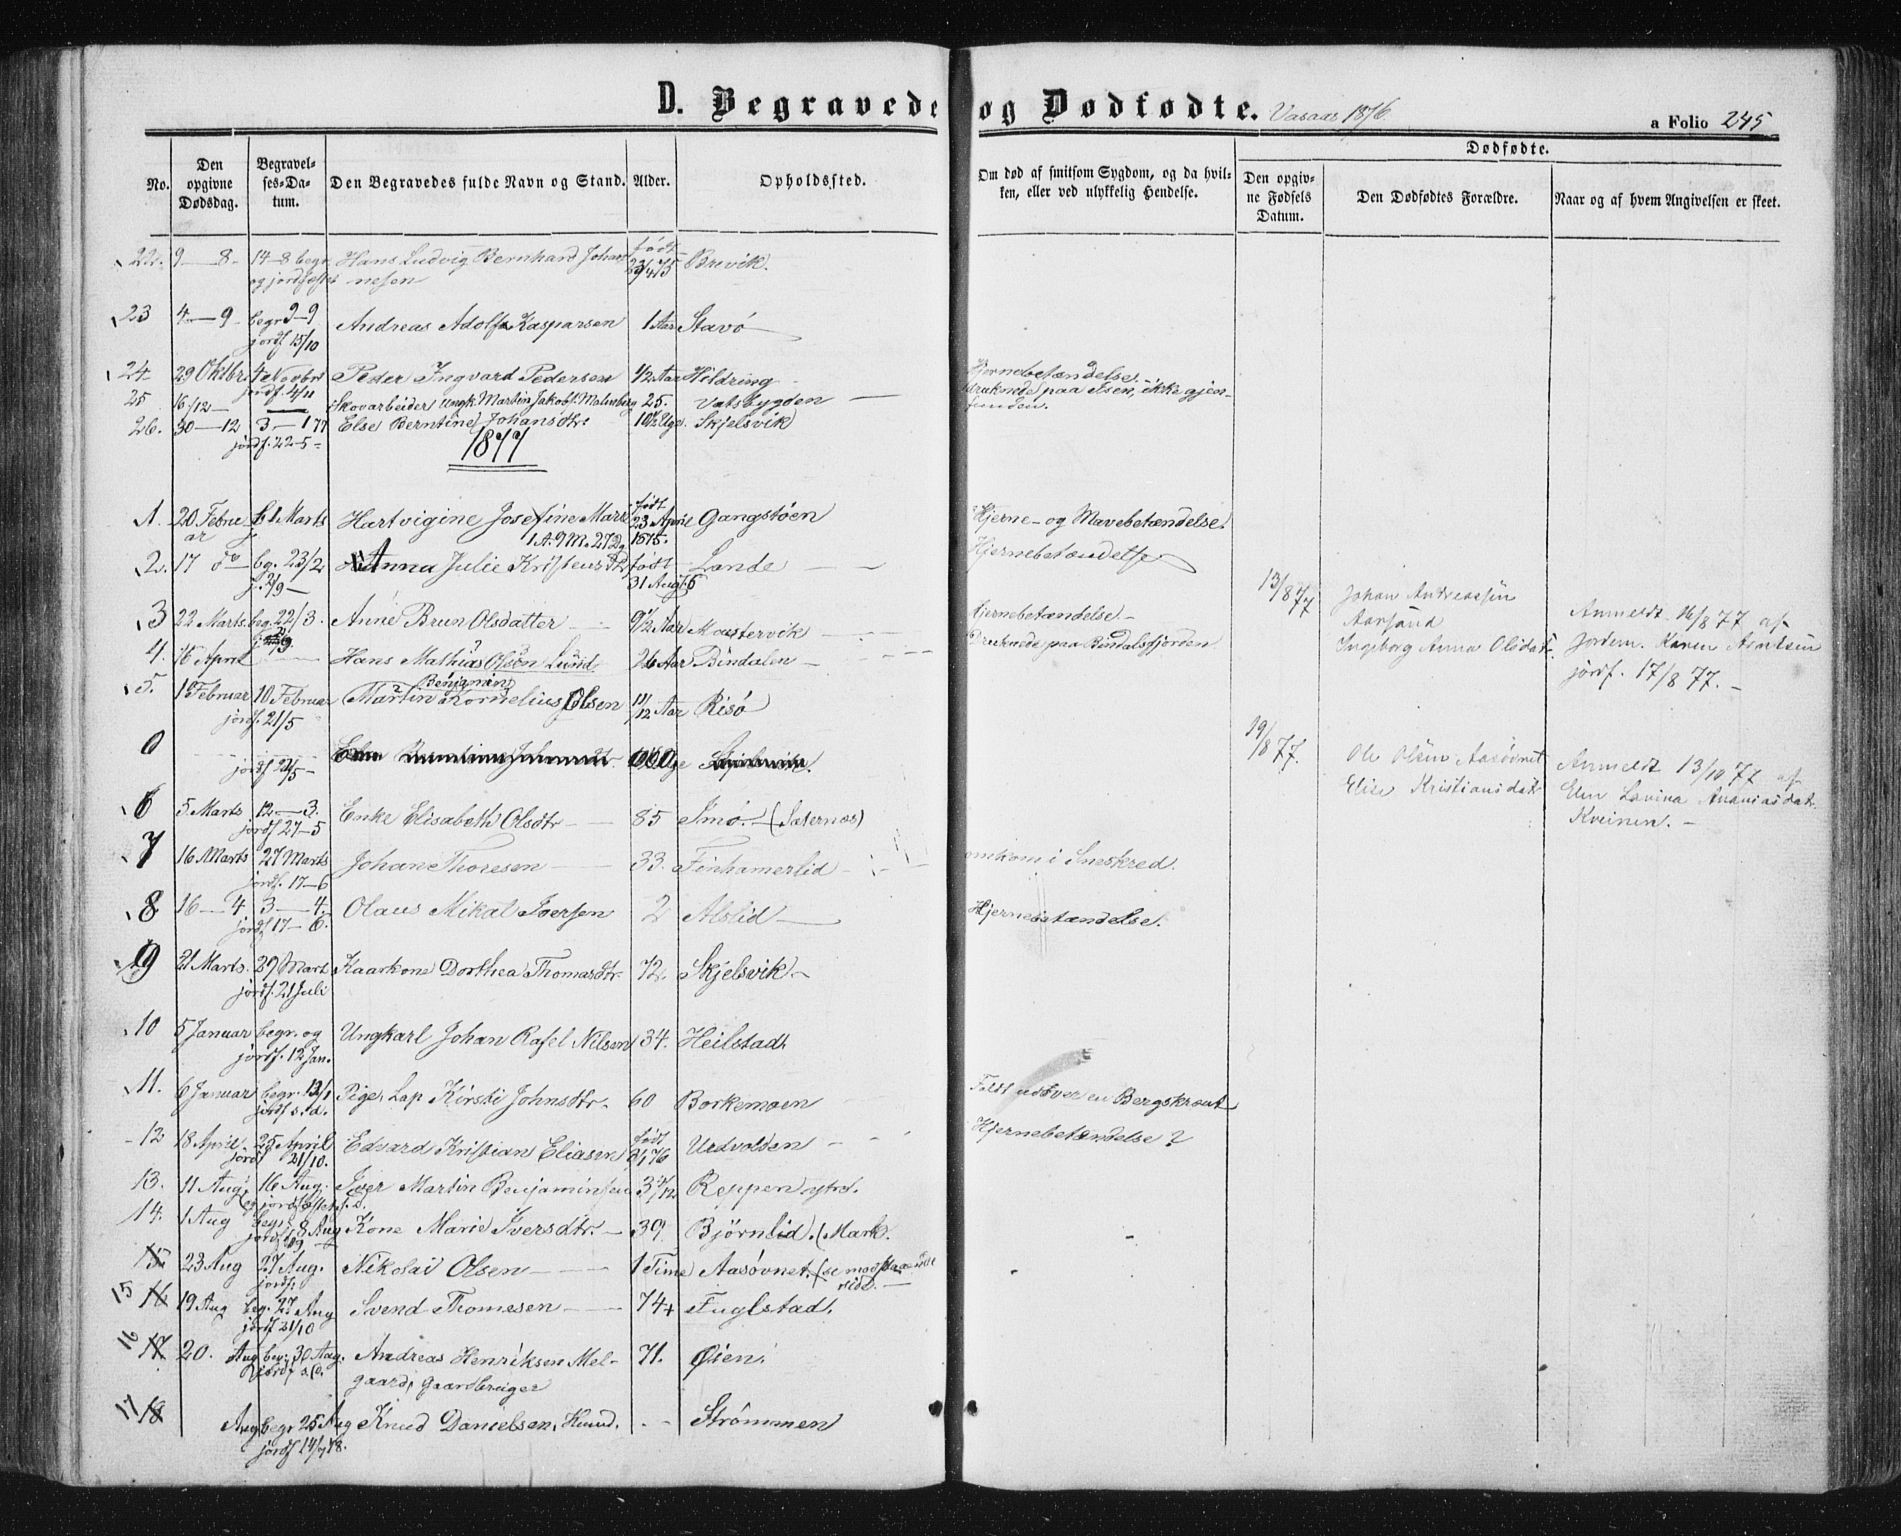 D. Begravede og Dødfødte. Vasaas 1876
a Folio 245
No.
Den opgivne Dødsdag.
Begravelses-Datum.
Den Begravedes fulde Navn og Stand.
Alder.
Opholdssted.
Om død af smitsom Sygdom, og da hvilken, eller ved ulykkelig Hendelse.
Dødfødte.
Den opgivne Fødsels Datum.
Den Dødfødtes Forældre.
Naar og af hvem Angivelsen er skeet.
22. 9–8– 14–8 begr. Hans Ludvig Bernhard Johan født Brevik.
og jordfæstet nesen 23/4 75
23 4–9 begr 9–9 Andreas Adolf Kasparsen 1 Aar Stavø
jordf 15/10
24 29 Oktbr. 4 Novbr Peder Ingvard Pedersen 1/2 Aar Hildring Hjernebetændelse.
jordf. 4/11
25 16/12– Skovarbeider Ungk. Martin Jakobs. Malmberg 25. Vatsbygden druknede paa Isen, ikke gjenfunden.
26. 30–12 3–1 77 Else Berntine Johansdtr. 10 1/2 Uge. Skjelsvik
jordf. 22–5–
1877
1. 20 Februar b. 1 Marts Hartvigine Josefine født 23 April 1875. Gangstøen Hjerne- og Mavebetændelse.
1 A. 9 M. 27 Dg
2. 17 do bg. 23/2 Anna Julie Kristensdtr født Lande Hjernebetændelse
31 Aug.
3 22 Marts. beg. 22/3. Anne Brun Olsdatter 9 1/2 Aar Mastervik Hjernebetændelse
4. 16 April Hans Mathias Olsøn Lund 26 Aar Bindalen Druknede paa Bindalsfjorden
5. 1 Februar 10. Februar Martin Kornelius Benjamin Olsen 11/12 Aar Risø
jordf. 21/5
0 jordf 22/5
6 5. Marts 12–3. Enke Elisabeth Olsdtr 85 Imø. (Sæternæs)
jordf 27–5
7 16 Marts 27 Marts Johan Thoresen 33. Finhamerlid omkom i Sneskred.
jordf. 17–6
8 16–4 3–4. Olaus Mikal Iversen 2 Alslid Hjernebetændelse.
jordf 17–6.
9 21 Marts. 29 Mart Kaarkone Dorthea Thomasdtr. 72. Skjelsvik
jordf. 21 Juli
10 5 Januar begr. og Ungkarl Johan Rafel Nilsen 34. Heilstad.
jordf. 12 Jan.
11. 6 Januar begr. 12/1 Pige, Lap Kirsti Johnsdtr. 60 Borkemoen Faldt udover en Bergskrent
jordf s. d.
12 18 April. 25 April Edvard Kristian Eliasen født Urdvolden Hjernebetændelse?
jordf 21/10.
13. 11 Aug. 16 Aug. Iver Martin Benjaminsen Reppen ytre.
og jordfæstet s. D.
14. 1 Aug begr. 8 Aug Kone Marie Iversdtr. 39. Bjørnlid. (Mark.
15 23 Aug 27 Aug. Nikolai Olsen 1 Time Aasøvnet. (se modstaaende side.
jordf.
15 16 19 Aug beg. 27 Aug Svend Thomesen 74 Fuglstad.
jordf 21/10
16 17 20. Aug beg. 30 Aug. Andreas Henriksen Mel- 71. Øien.
jordf s. D. gaard, Gaardbruger
17 18 Aug begr 25 Aug Knud Danielsen, Huusd. Strømmen
jordf 14/7 78.
13/8 77 Johan Andreassen Aarsand Anmeldt 16/8 77 af
Ingeborg Anna Olsdat. Jordem. Karen Arntsen
jordf. 17/8 77.
19/8 77. Ole Olsen Aasøvnet Anmeldt 13/10 77 af
Elise Kristiansdat. Elen Lavina Ananiasdat.
Kveinen.